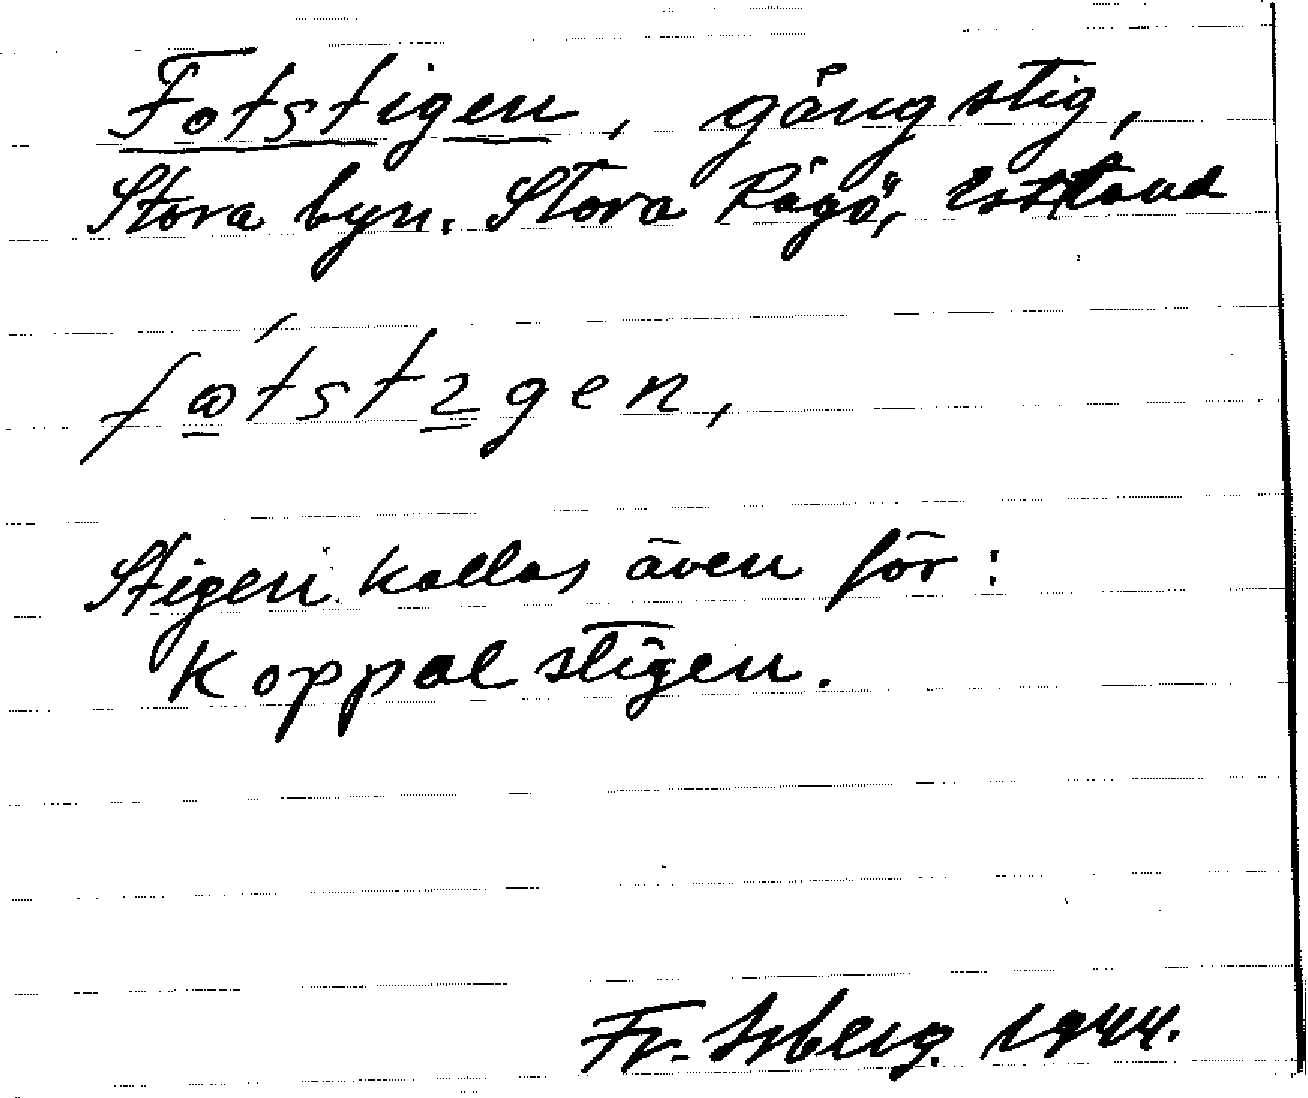 Fotstigen, gångstig,
Stora byn. Stora Rågö, Estland
fωtstιgen,
Stigen kallas även för:
Koppalstigen.
Fr. Isberg. 1944.